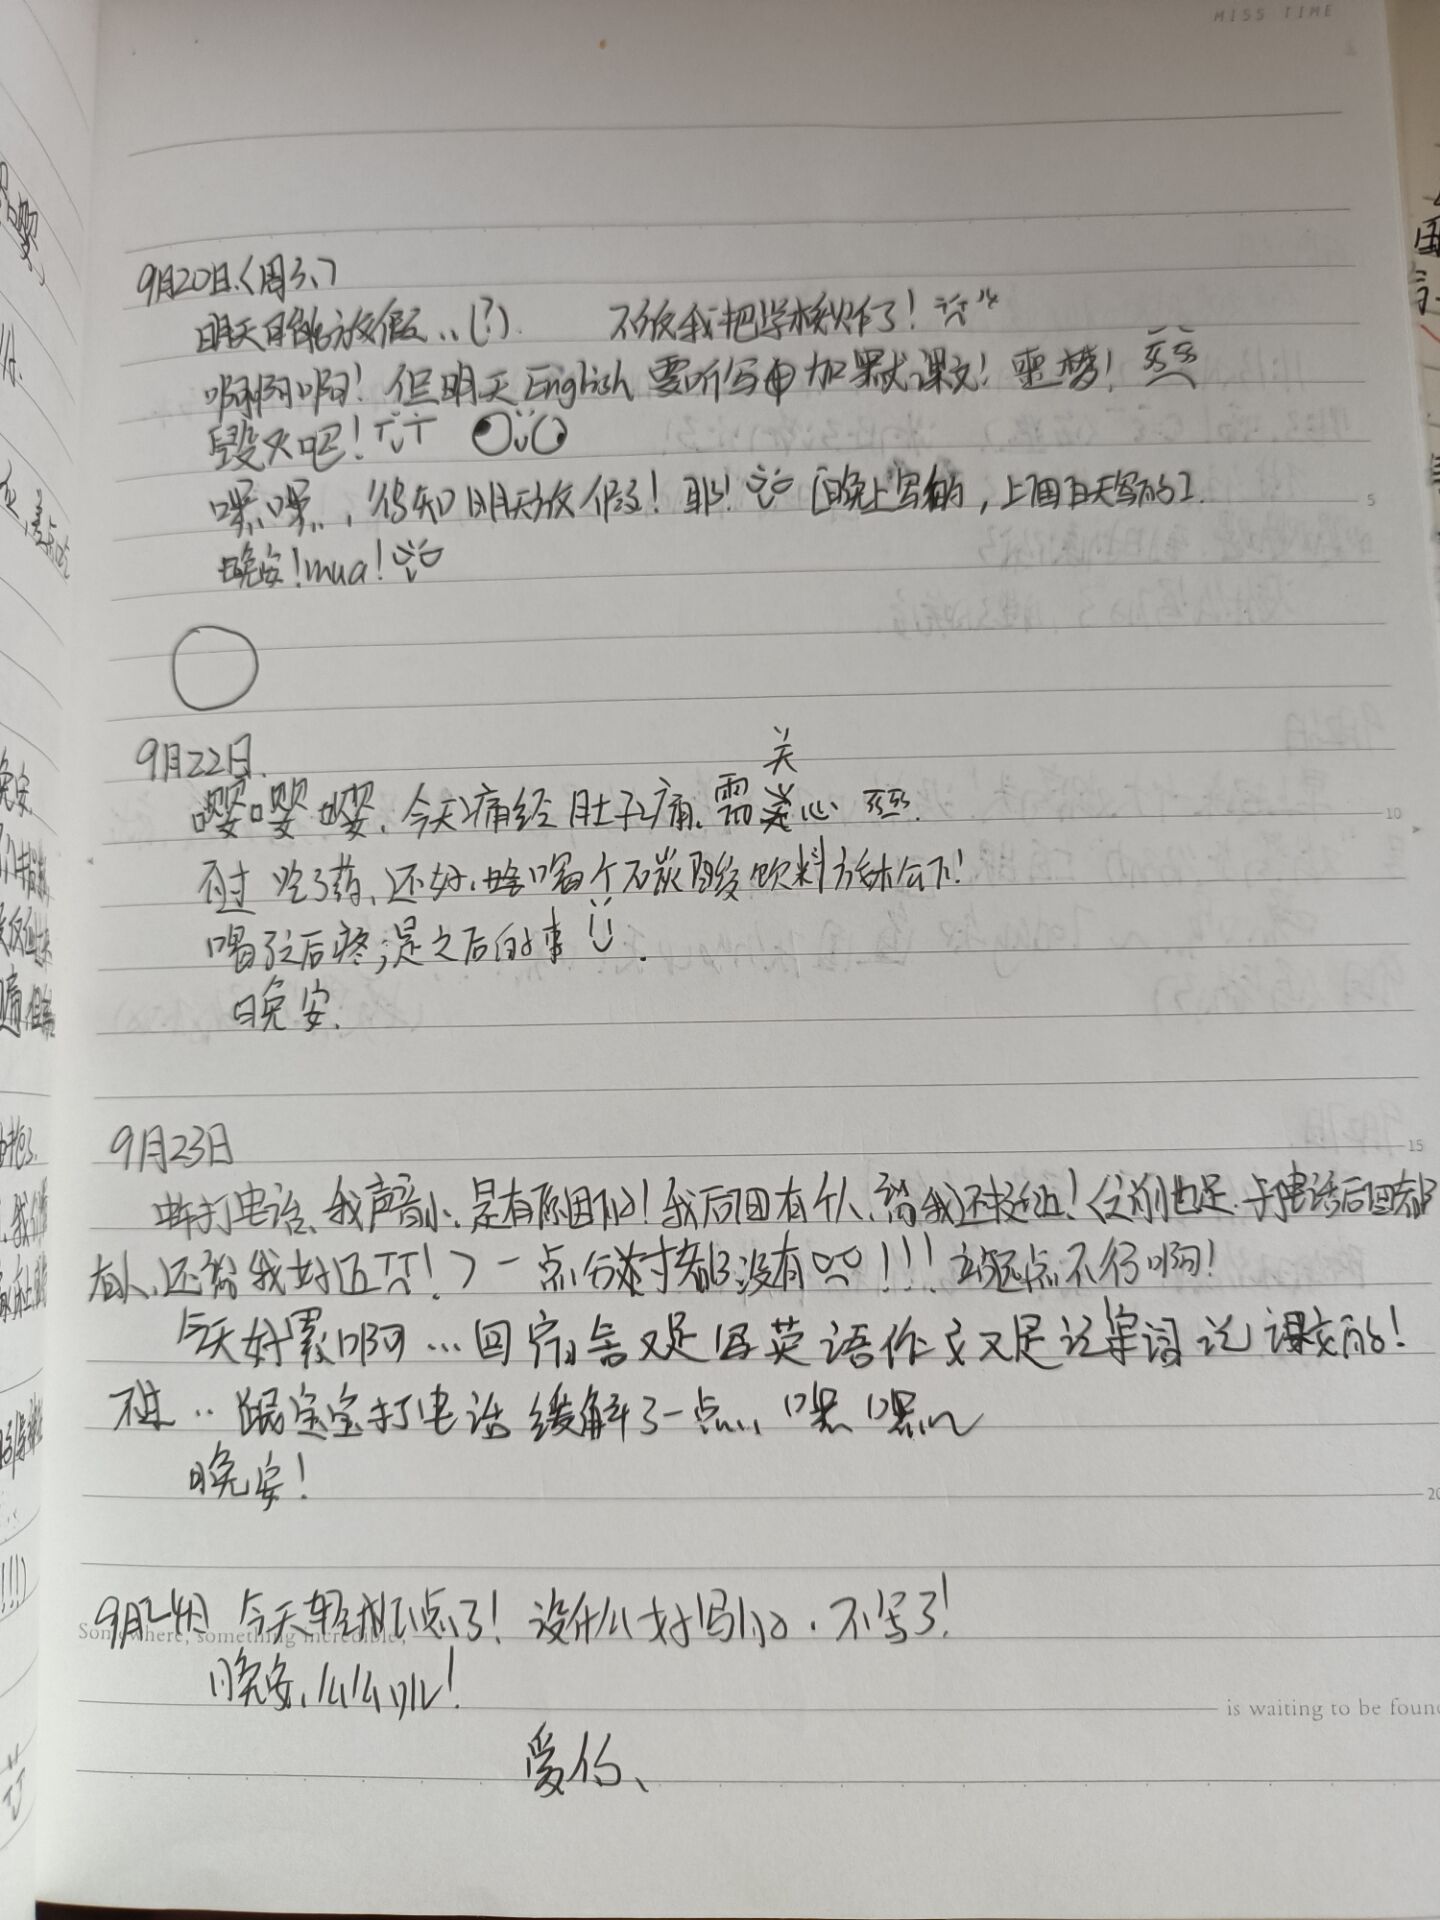 MISS TIME
9月20日.(周三、)
明天可能放假..(?). 不放我把学校炸了!
啊啊啊! 但明天English 要听写 加默课文! 噩梦!
毁灭吧! TvT
嘿嘿, 得知明天放假! 耶! [晚上写的, 上面白天写的].
晚安!mua!
5
9月22日.
关
嘤嘤嘤. 今天痛经 肚子痛. 需 心
10
不过 吃了药、还好. 喝个 碳酸饮料 一下!
喝了之后疼,是之后的事
晚安.
9月23日
15
打电话、我声音小、是有原因的! 我后面有个人、离我还挺近! (之前也是. 打电话后面都
有人、还离我好近TT!) 一点分寸都没有 !!! 站远点不行啊!
今天好累啊...回宿舍又是写英语作文又是记单词记课文的!
不过.. 跟宝宝打电话 缓解了一点.. 嘿嘿~
晚安!
20
9月24日 今天轻松一点了! 没什么好写的. 不写了!
Somewhere, something incredible,
晚安、么么叽!
is waiting to be foun
爱你、